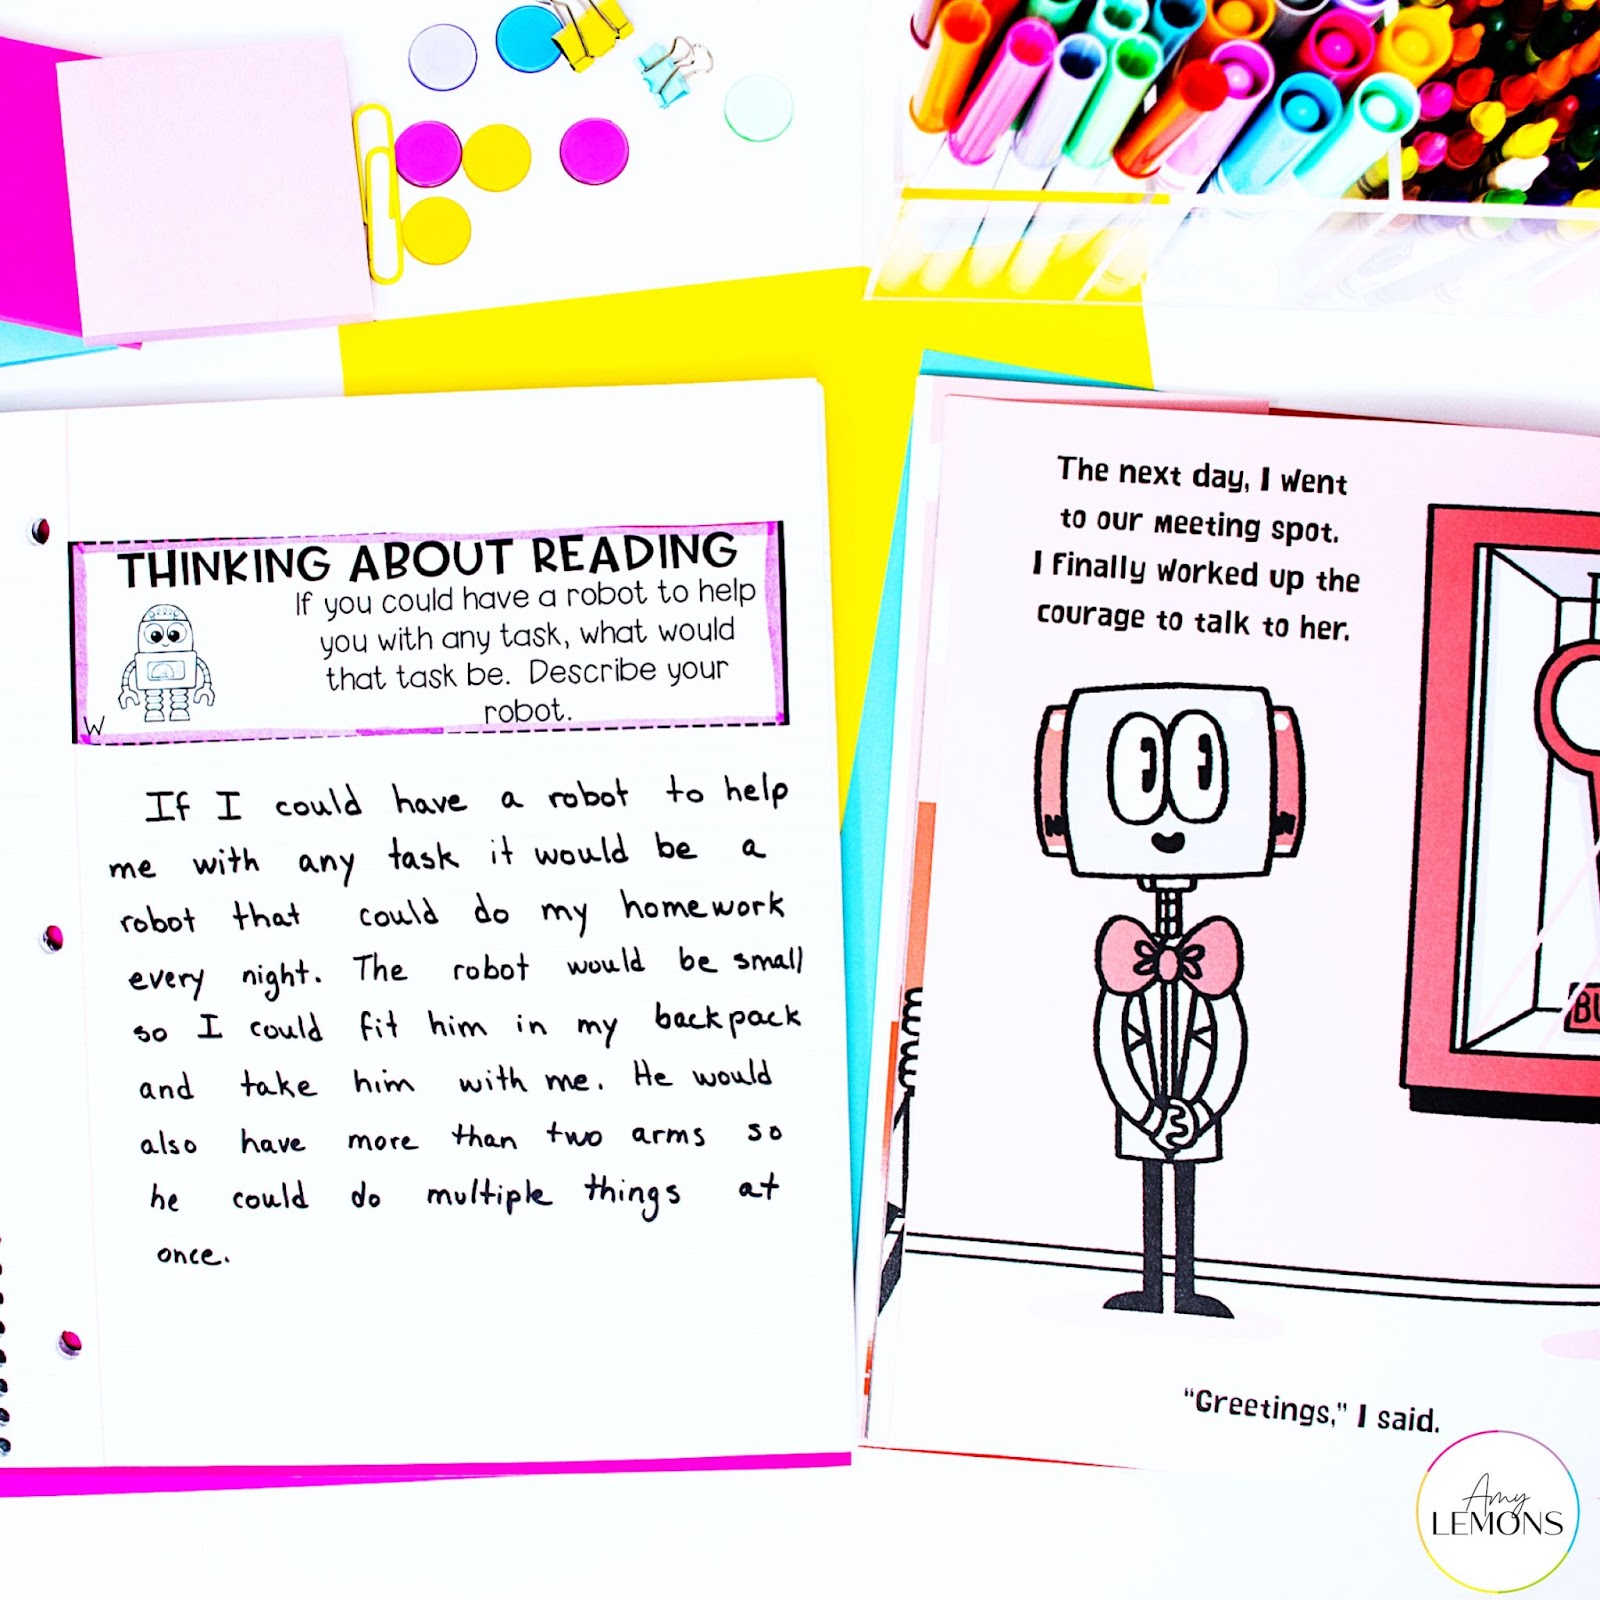 THINKING ABOUT READING
If you could have a robot to help
you with any task, what would
that task be. Describe your
robot.
W
If I could have a robot to help
me with any task it would be a
robot that could do my homework
every night. The robot would be small
so I could fit him in my backpack
and take him with me. He would
also have more than two arms so
he could do multiple things at
once.
The next day, I went
to our meeting spot.
I finally worked up the
courage to talk to her.
"Greetings," I said.
Amy
LEMONS